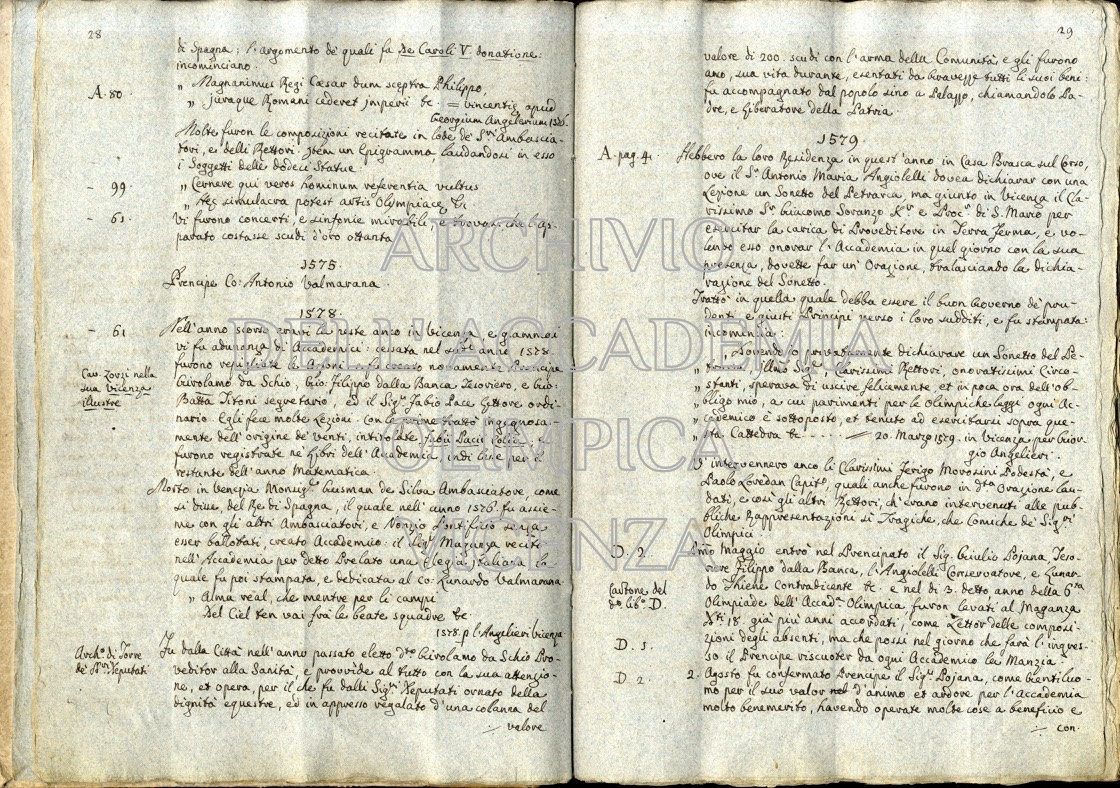 28
di Spagna; l'argomento de quali fa De Caroli V. donatione:
incominciano.
A. 80.
„ Magnanimus Regi Cæsar dum sceptra Philippo,
„ juraque Romani cederet imperii &c. = vincentiæ apud
Georgium Angelerium 1576.
Molte furon le composizioni recitate in lode de Sri Ambascia-
tori, e delli Rettori. Item un Epigramma laudandosi in esso
i Soggetti delle dodeci Statue.
- 99.
„ Cernere qui veros hominum referentia vultus
„ Hæc simulacra potest artis Olympiacæ &c
- 61.
Vi furono concerti, e sinfonie mirabili, e trovasi che l'ap-
parato costasse scudi d'oro ottanta
1575
Prencipe Co: Antonio Valmarana.
1578.
- 61
Nell'anno scorso eravi la peste anco in Vicenza e giammai
vi fu adunanza d'Accademici: cessata nel sudti anno 1578.
furono repigliate le Azioni, e si crearono novamenti Prencipe
Cav. Zorzi nella
sua Vicenza
illustre
Girolamo da Schio, Gio: Filippo dalla Banca Tesoriero, e Gio:
Batta Titoni segretario, ed il Sigr Fabio Pace Lettore ordi-
nario. Egli fece molte Lezioni. Con le prime trattò ingegnosa-
mente dell'origine de venti, intitolate Fabii Pacii
furono registrate ne Libri dell'Accademia, indi lesse per il
restante dell'anno Matematica.
Morto in Venezia Monsigr Gusman de Silva Ambasciatore, come
si disse, del Re di Spagna, il quale nell'anno 1576. fu assie-
me con gli altri Ambasciatori, e Nonzio Pontificio senza
esser ballottati, creato Academico: il Sigr Maganza recitò
nell'Accademia per detto Prelato una Elegia italiana la
quale fu poi stampata, e dedicata al Co: Lunardo Valmarana
„ Alma real, che mentre per li campi
Del Ciel ten vai frà le beate squadre &c
1578. p l'Angelieri Vicenza
Archo di Torre
de Sri Deputati
Fu dalla Città nell'anno passato eletto dto Girolamo da Schio Pro-
veditor alla Sanità, e provvide al tutto con la sua attenzio-
ne, et opera, per il che fu dalli Sigri Deputati ornato della
dignità equestre, ed in appresso regalato d'una colanna del
valore
29
valore di 200. scudi con l'arma della Comunità, e gli furono
anco, sua vita durante, esentati da gravezze tutti li suoi beni:
fu accompagnato dal popolo sino a Palazzo, chiamandolo Pa-
dre, e Liberatore della Patria
1579.
A. pag. 4.
Hebbero la loro Residenza in quest'anno in Casa Brasca sul Corso,
ove il Sr Antonio Maria Angiolelli dovea dichiarar con una
Lezione un Sonetto del Petrarca, ma giunto in Vicenza il Cla-
rissimo Sr Giacomo Soranzo Kr e Procr di S. Marco per
esercitar la carica di Proveditore in Terra Ferma, e vo-
lendo esso onorar l'Accademia in quel giorno con la sua
presenza, dovette far un'Orazione, tralasciando la dichia-
razione del Sonetto.
Trattò in quella quale debba essere il buon Governo de pru-
denti e giusti Principi verso i loro sudditi, e fu stampata:
incomincia:
„ Dovendo io privatamente dichiarare un Sonetto del Pe-
„ trarca Illmo Sigr Clarissimi Rettori, onoratissimi Circo-
„ stanti, sperava di uscire felicemente, et in poca ora dell'ob-
„ bligo mio, a cui parimenti per le Olimpiche leggi ogni Ac-
„ cademico è sottoposto, et tenuto ad esercitarsi sopra que-
„ sta Cattedra &c - - - - = 20. Marzo 1579. in Vicenza per Gior-
gio Angelieri.
V'intervennero anco li Clarissimi Ferigo Morosini Podestà, e
Paolo Loredan Capito, quali anche furono in dta Orazione lau-
dati, e così gli altri Rettori, ch'erano intervenuti alle pub-
bliche Rappresentazioni sì Tragiche, che Comiche de Sigri
Olimpici.
D. 2.
Primo Maggio entrò nel Prencipato il Sig. Giulio Pojana, Teso-
riere Filippo dalla Banca, l'Angiolelli Conservatore, e Lunar-
Cartone del
do libo D.
do Thiene contradicente &c. e nel dì 3. detto anno della 6ta
Olimpiade dell'Accadа Olimpica, furon levati al Maganza
Dti 18. già più anni accordati, come Lettor delle composi-
D. 5.
zioni degli absenti, ma che possi nel giorno che farà l'ingres-
so il Prencipe riscuoter da ogni Accademico la Manzia.
D. 2.
2. Agosto fu confermato Prencipe il Sigr Pojana, come Gentiluo-
mo per il suo valor d'animo et ardore per l'Accademia
molto benemerito, havendo operate molte cose a beneficio e
con
ARCHIVIO
DELL'ACCADEMIA
OLIMPICA
VICENZA